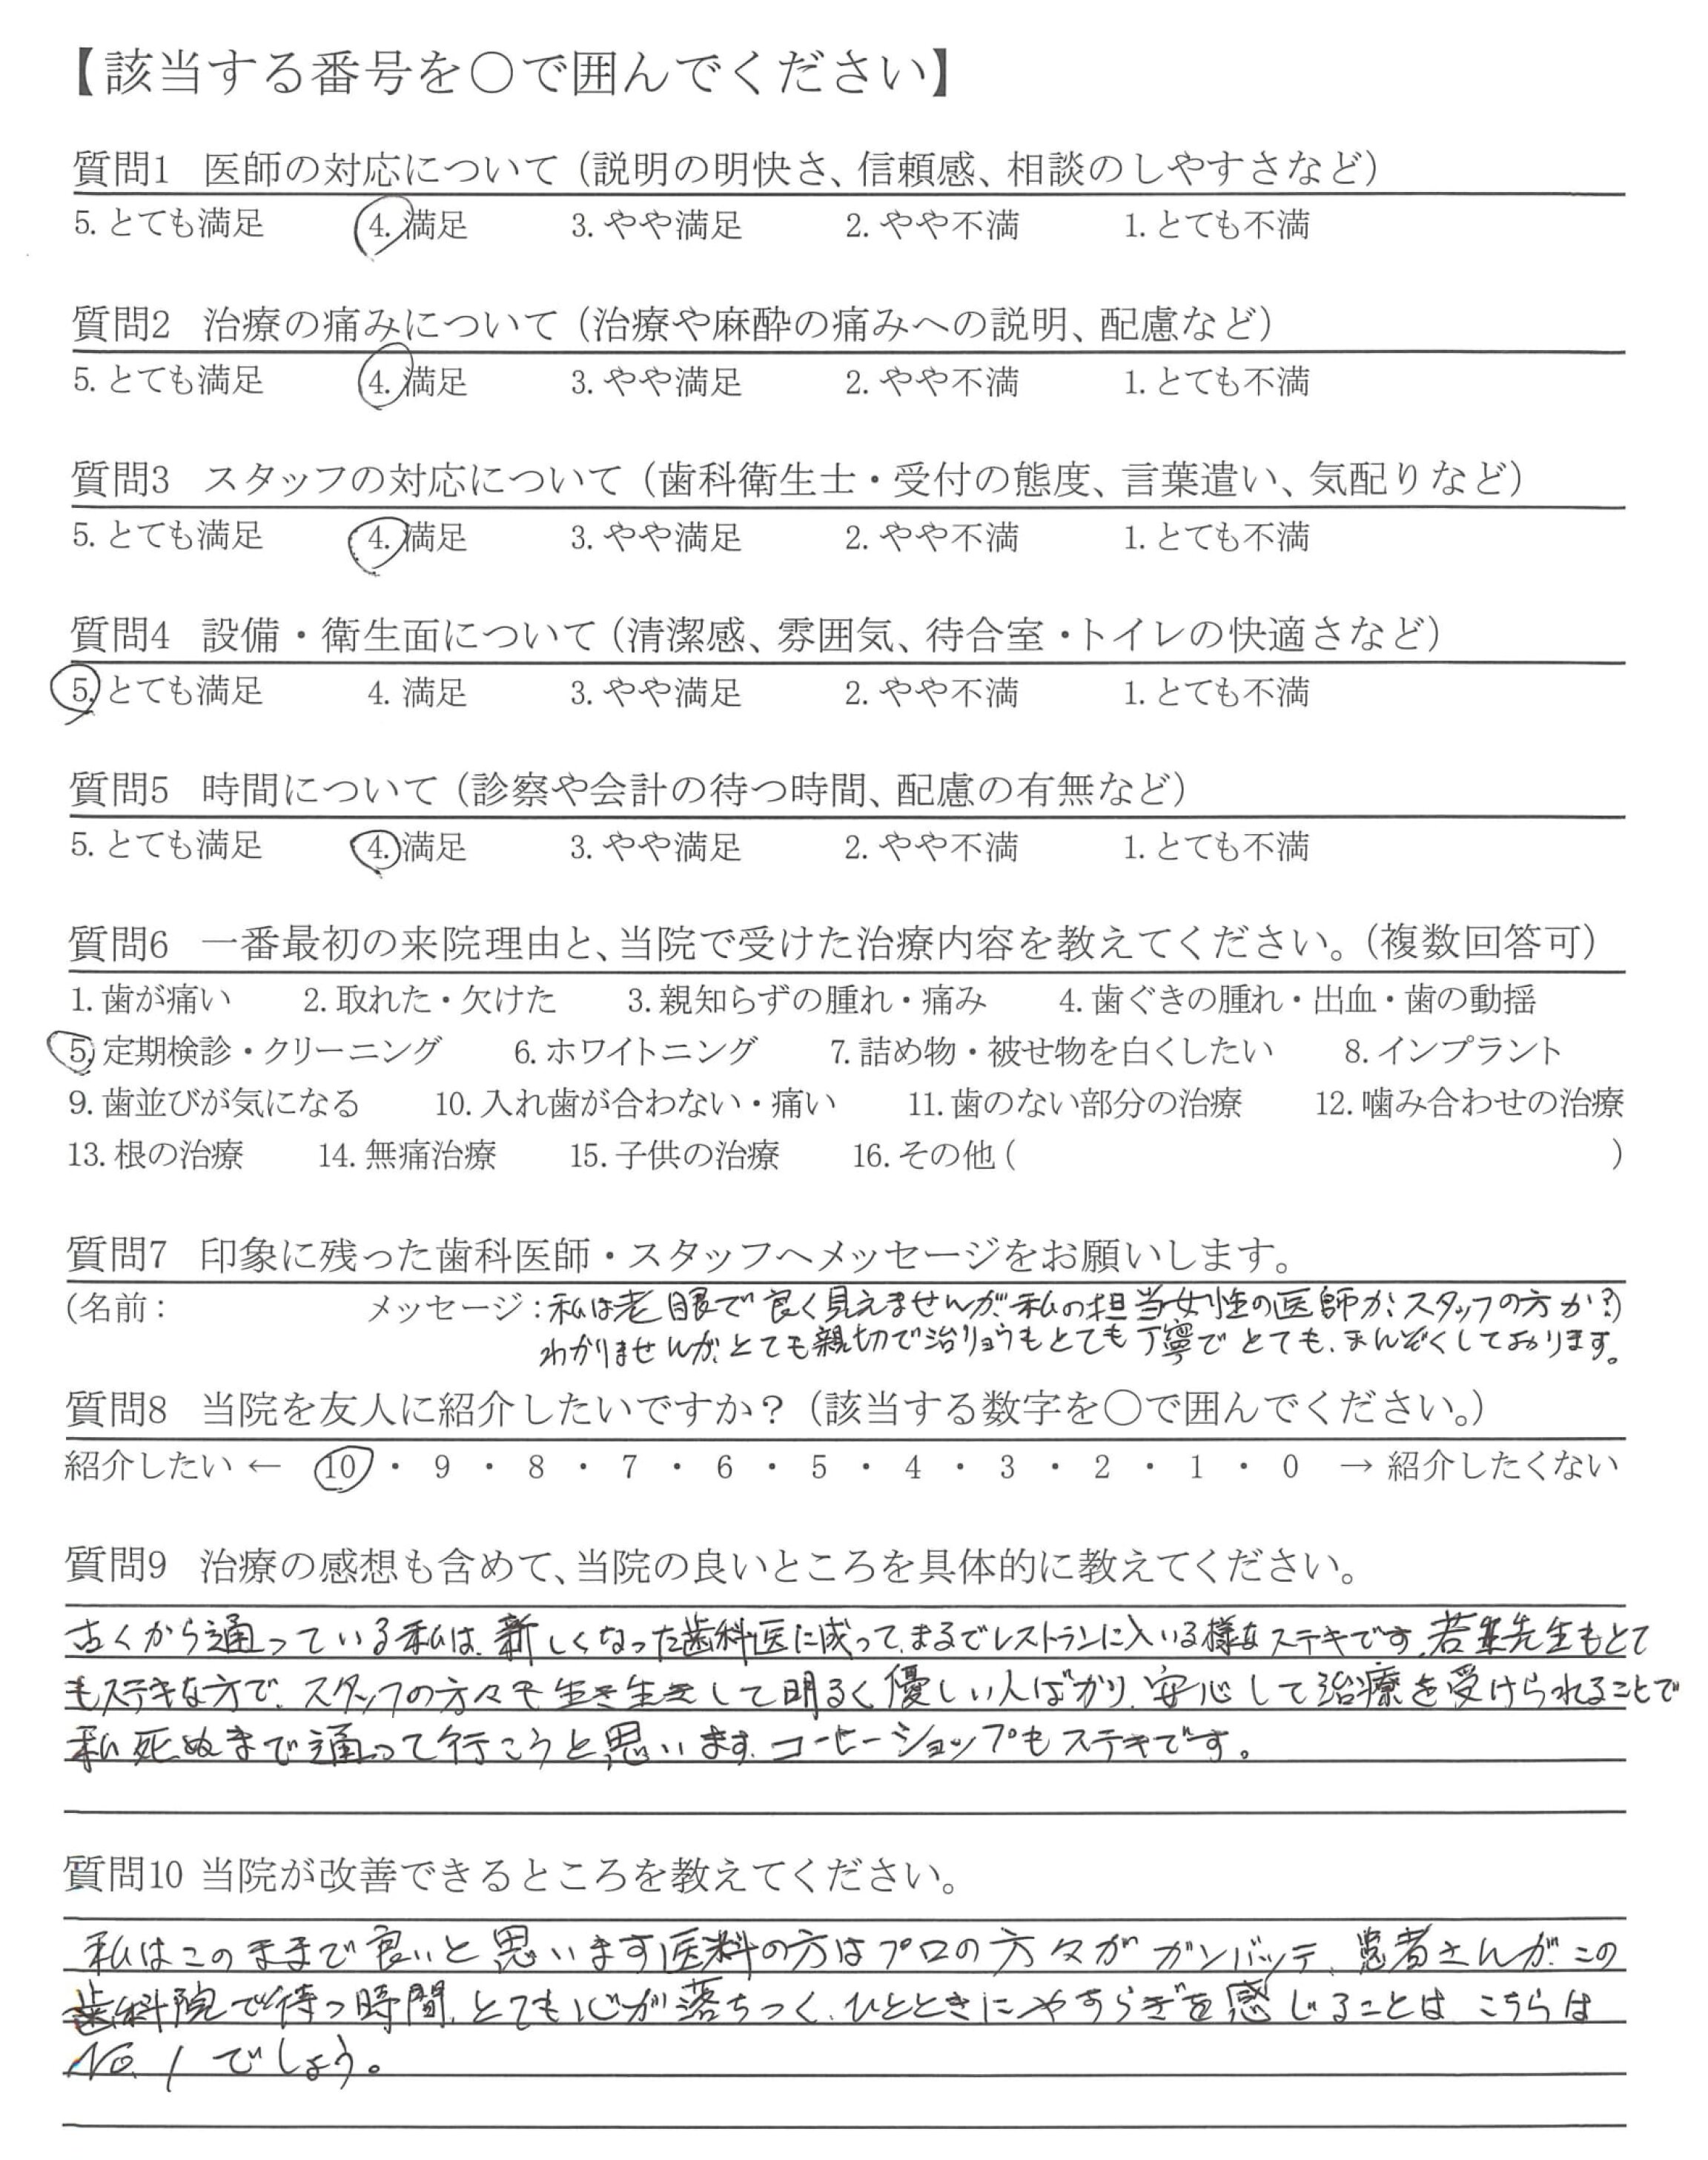 【該当する番号を〇で囲んでください】
質問1 医師の対応について（説明の明快さ、信頼感、相談のしやすさなど）
5. とても満足 4. 満足 3. やや満足 2. やや不満 1. とても不満
質問2 治療の痛みについて（治療や麻酔の痛みへの説明、配慮など）
5. とても満足 4. 満足 3. やや満足 2. やや不満 1. とても不満
質問3 スタッフの対応について（歯科衛生士・受付の態度、言葉遣い、気配りなど）
5. とても満足 4. 満足 3. やや満足 2. やや不満 1. とても不満
質問4 設備・衛生面について（清潔感、雰囲気、待合室・トイレの快適さなど）
5. とても満足 4. 満足 3. やや満足 2. やや不満 1. とても不満
質問5 時間について（診察や会計の待つ時間、配慮の有無など）
5. とても満足 4. 満足 3. やや満足 2. やや不満 1. とても不満
質問6 一番最初の来院理由と、当院で受けた治療内容を教えてください。（複数回答可）
1. 歯が痛い 2. 取れた・欠けた 3. 親知らずの腫れ・痛み 4. 歯ぐきの腫れ・出血・歯の動揺
5. 定期検診・クリーニング 6. ホワイトニング 7. 詰め物・被せ物を白くしたい 8. インプラント
9. 歯並びが気になる 10. 入れ歯が合わない・痛い 11. 歯のない部分の治療 12. 噛み合わせの治療
13. 根の治療 14. 無痛治療 15. 子供の治療 16. その他（ ）
質問7 印象に残った歯科医師・スタッフへメッセージをお願いします。
（名前： メッセージ：私は老眼で良く見えませんが、私の担当女性の医師か、スタッフの方か？）
わかりませんが、とても親切で治リョウもとても丁寧でとても、まんぞくしております。
質問8 当院を友人に紹介したいですか？（該当する数字を〇で囲んでください。）
紹介したい ← 10 ・ 9 ・ 8 ・ 7 ・ 6 ・ 5 ・ 4 ・ 3 ・ 2 ・ 1 ・ 0 → 紹介したくない
質問9 治療の感想も含めて、当院の良いところを具体的に教えてください。
古くから通っている私は、新しくなった歯科医に成って、まるでレストランに入いる様なステキです、若先生もとて
もステキな方で、スタッフの方々も生き生きして明るく優しい人ばかり、安心して治療を受けられることで
私死ぬまで通って行こうと思います、コーヒーショップもステキです。
質問10 当院が改善できるところを教えてください。
私はこのままで良いと思います医科の方はプロの方々がガンバッテ、患者さんが、この
歯科院で待つ時間、とても心が落ちつく、ひとときにやすらぎを感じることは こちらは
No.1でしょう。